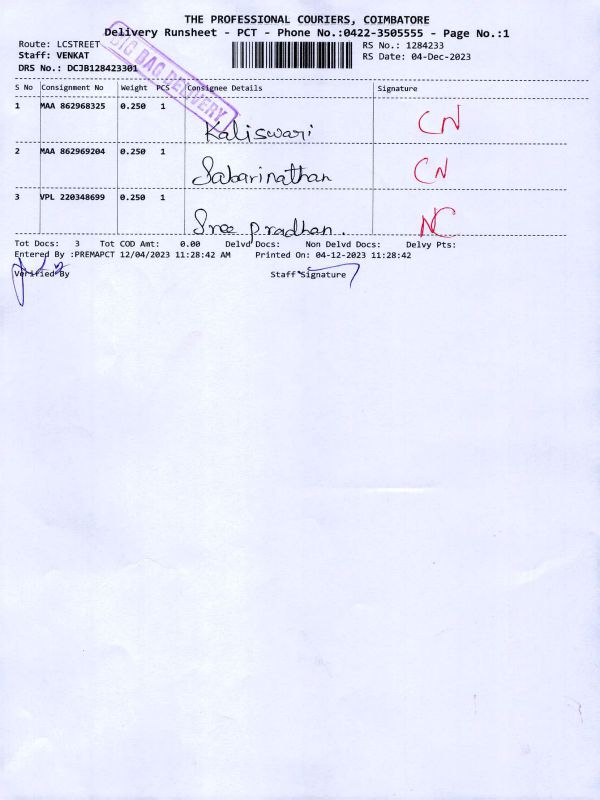 THE PROFESSIONAL COURIERS, COIMBATORE
Delivery Runsheet - PCT - Phone No.:0422-3505555 - Page No.:1
Route: LCSTREET RS No.: 1284233
Staff: VENKAT RS Date: 04-Dec-2023
DRS No.: DCJB128423301
BIG BAG DELIVERY
S No Consignment No Weight PCS Consignee Details Signature
1 MAA 862968325 0.250 1 Kaliswari CN
2 MAA 862969204 0.250 1 Sabarinathan CN
3 VPL 220348699 0.250 1 Sree Pradhan. NC
Tot Docs: 3 Tot COD Amt: 0.00 Delvd Docs: Non Delvd Docs: Delvy Pts:
Entered By :PREMAPCT 12/04/2023 11:28:42 AM Printed On: 04-12-2023 11:28:42
Verified By Staff Signature